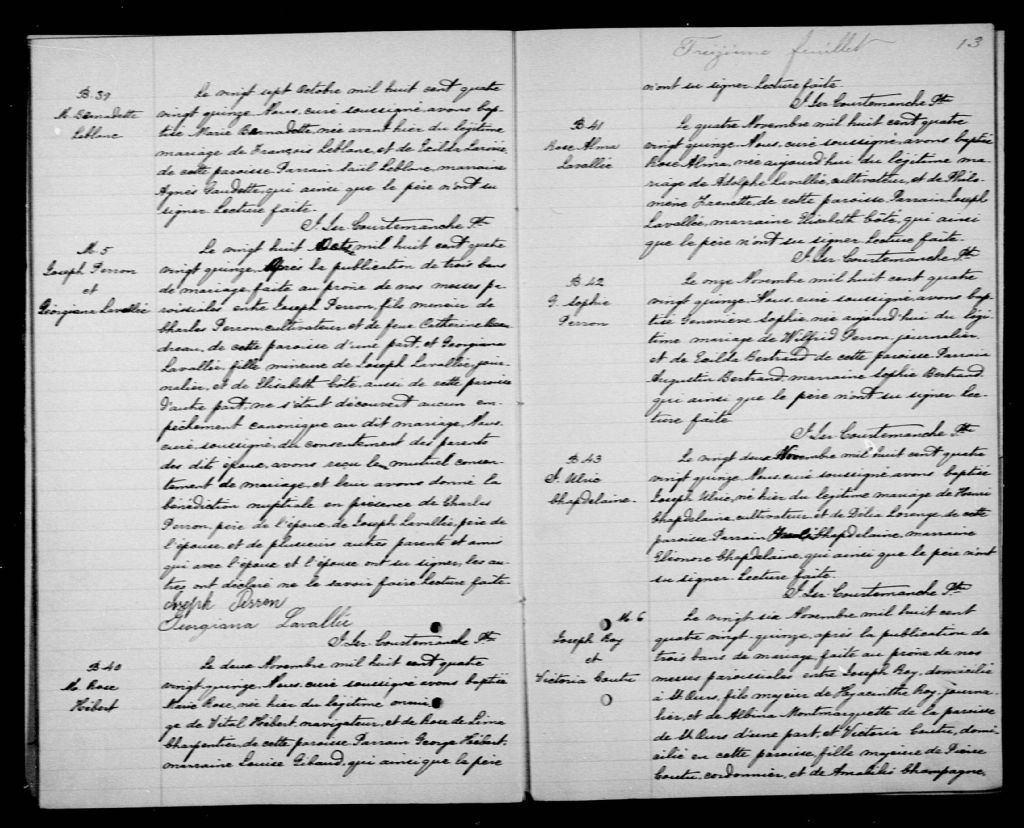 B. 39
M. Bernadette
Leblanc
Le vingt sept Octobre mil huit cent quatre
vingt quinze. Nous, curé soussigné, avons bap-
tisé Marie Bernadette, née avant hier du légitime
mariage de François Leblanc et de Exilda
de cette paroisse. Parrain Leblanc, marraine
Agnès Gaudette, qui ainsi que le père n'ont su
signer. Lecture faite.
J. Ler. Courtemanche Ptr
M. 5
Joseph Perron
et
Géorgiana Lavallée
Le vingt huit Octe mil huit cent quatre
vingt quinze. Après la publication de trois bans
de mariage faite au prône de nos messes pa-
roissiales entre Joseph Perron, fils mineur de
Charles Perron, cultivateur, et de feue Catherine
de cette paroisse d'une part, et Georgiana
Lavallée, fille mineure de Joseph Lavallée, jour-
nalier, et de Elisabeth Coté, aussi de cette paroisse
d'autre part, ne s'étant découvert aucun em-
pêchement canonique au dit mariage, Nous,
curé soussigné, du consentement des parents
des dits époux, avons reçu le mutuel consen-
tement de mariage, et leur avons donné la
bénédiction nuptiale en présence de Charles
Perron, père de l'époux, de Joseph Lavallée, père de
l'épouse, et de plusieurs autres parents et amis
qui avec l'époux et l'épouse ont su signer, les au-
tres ont déclaré ne le savoir faire. Lecture faite.
Joseph Perron
Georgiana Lavallée
J. Ler. Courtemanche Ptr
B. 40
M. Rose
Hébert
Le deux Novembre mil huit cent quatre
vingt quinze. Nous, curé soussigné avons baptisé
Marie Rose, née hier du légitime maria-
ge de Vital Hébert navigateur, et de Rose de Lima
Charpentier, de cette paroisse. Parrain George Hébert,
marraine Louise Gibaud, qui ainsi que le père
Treizième feuillet
13
n'ont su signer. Lecture faite.
J. Ler. Courtemanche Ptr
B. 41
Rose-Alma
Lavallée
Le quatre Novembre mil huit cent quatre
vingt quinze. Nous, curé soussigné, avons baptisé
Rose Alma, née aujourd'hui du légitime ma-
riage de Adolphe Lavallée, cultivateur, et de Philo-
mène Frenette, de cette paroisse. Parrain Joseph
Lavallée, marraine Elisabeth Coté, qui ainsi
que le père n'ont su signer. Lecture faite.
J. Ler. Courtemanche Ptr
B. 42
G. Sophie
Perron
Le onze Novembre mil huit cent quatre
vingt quinze. Nous, curé soussigné, avons bap-
tisé Geneviève Sophie née aujourd'hui du légi-
time mariage de Wilfrid Perron, journalier,
et de Exilda Bertrand de cette paroisse. Parrain
Augustin Bertrand, marraine Sophie Bertrand
qui ainsi que le père n'ont su signer. Lec-
ture faite.
J. Ler. Courtemanche Ptr
B. 43
J. Ulric
Chapdelaine.
Le vingt deux Novembre mil huit cent quatre
vingt quinze. Nous, curé soussigné avons baptisé
Joseph Ulric, né hier du légitime mariage de Henri
Chapdelaine, cultivateur et de Délia Lorange, de cette
paroisse. Parrain Chapdelaine, marraine
Eléonore Chapdelaine, qui ainsi que le père n'ont
su signer. Lecture faite.
J. Ler. Courtemanche Ptr
M. 6
Joseph Roy
et
Victoria Coutu
Le vingt six Novembre mil huit cent
quatre vingt quinze, après la publication de
trois bans de mariage faite au prône de nos
messes paroissiales entre Joseph Roy, domicilié
à St Ours, fils majeur de Hyacinthe Roy, journa-
lier, et de Albina Montmarquette de la paroisse
de St Ours d'une part, et Victoria Coutu, domi-
ciliée en cette paroisse, fille majeure de Pierre
Coutu, cordonnier, et de Champagne,